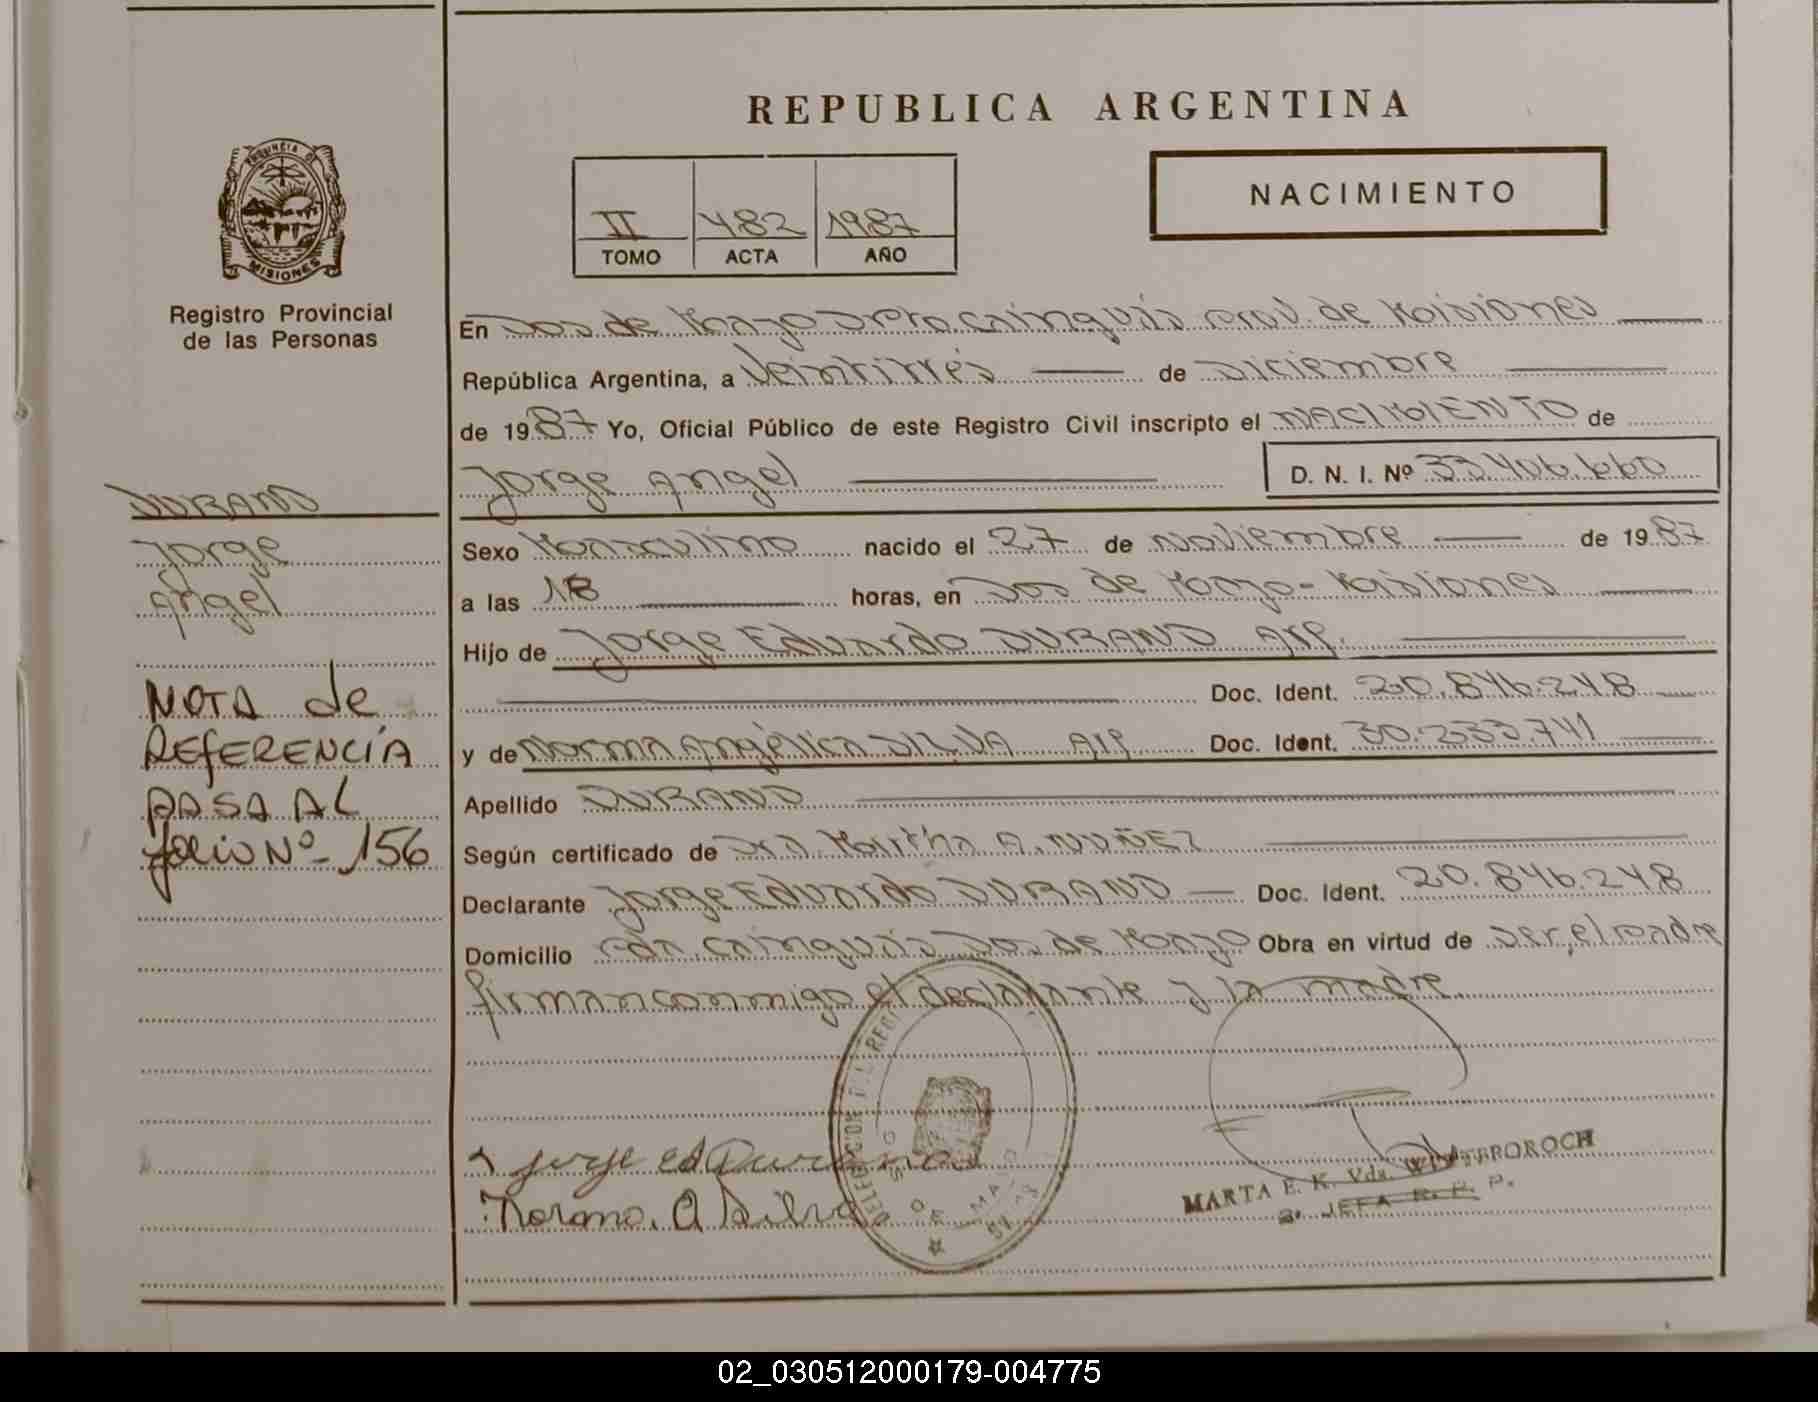 REPUBLICA ARGENTINA
PROVINCIA DE
MISIONES
Registro Provincial
de las Personas
II 482 1987
TOMO ACTA AÑO
NACIMIENTO
En Dos de Mayo Dpto. Cainguás Prov. de Misiones
República Argentina, a Veintitrés de Diciembre
de 1987 Yo, Oficial Público de este Registro Civil inscripto el NACIMIENTO de
Jorge Angel D. N. I. Nº 33.406.660
DURAND
Jorge
Angel
NOTA de
REFERENCIA
PASA AL
folio Nº 156
Sexo Masculino nacido el 27 de Noviembre de 1987
a las 18 horas, en Dos de Mayo-Misiones
Hijo de Jorge Eduardo DURAND Arg.
Doc. Ident. 20.846.248
y de Norma Angélica SILVA Arg Doc. Ident. 30.233.741
Apellido DURAND
Según certificado de Dra. Martha A. NUÑEZ
Declarante Jorge Eduardo DURAND Doc. Ident. 20.846.248
Domicilio Cainguás Dos de Mayo Obra en virtud de ser, el padre
firman conmigo el declarante y la madre
Jorge Ed Durand
Norma. A Silva
DELEGACION DEL REG
DOS DE MAYO
MARTA E. K. Vda. WINTEROROCH
JEFA R. P. P.
02_030512000179-004775